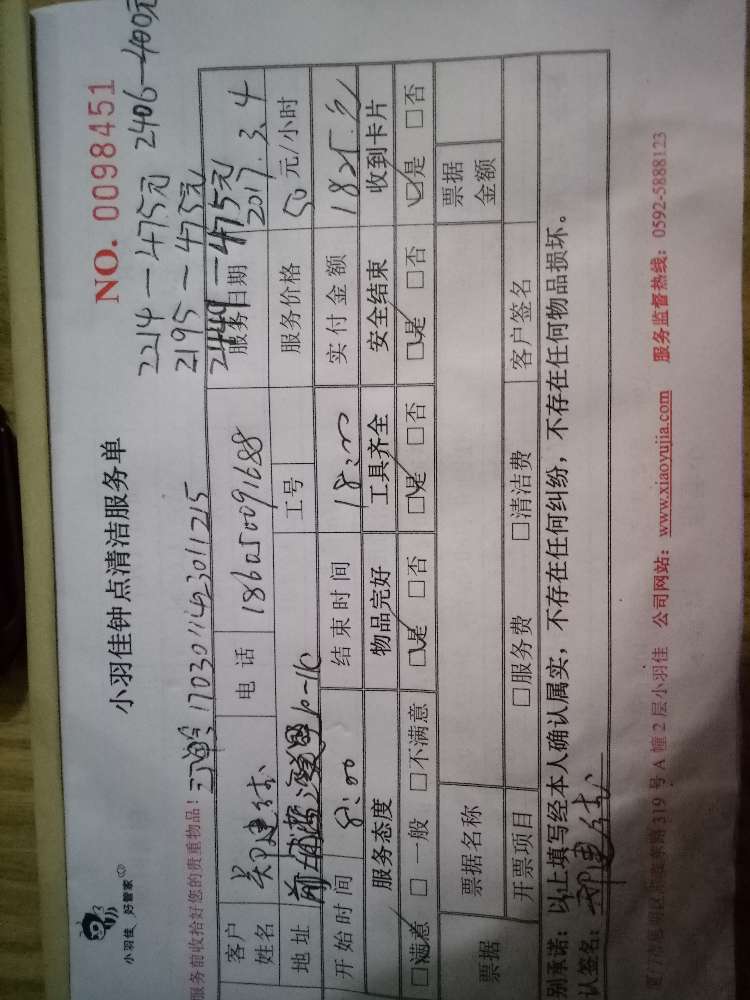 小羽佳 好管家
小羽佳钟点清洁服务单
NO. 0098451
2214－475元 2406－400元
2195－475元
2449－475元
服务前收拾好您的贵重物品！ 订单号 17030114230111215
客户姓名 郑建 电话 186050091688 服务日期 2017.3.4
地址 工号 服务价格 50 元/小时
开始时间 8:00 结束时间 18:00 实付金额 1825元
服务态度 物品完好 工具齐全 安全结束 收到卡片
☑满意 □一般 □不满意 ☑是 □否 ☑是 □否 ☑是 □否 ☑是 □否
票据 票据名称 票据金额
开票项目 □服务费 □清洁费 客户签名
别承诺：以上填写经本人确认属实，不存在任何纠纷，不存在任何物品损坏。
认签名：郑建
319 号 A 幢 2 层小羽佳 公司网站：www.xiaoyujia.com 服务监督热线：0592-5888123